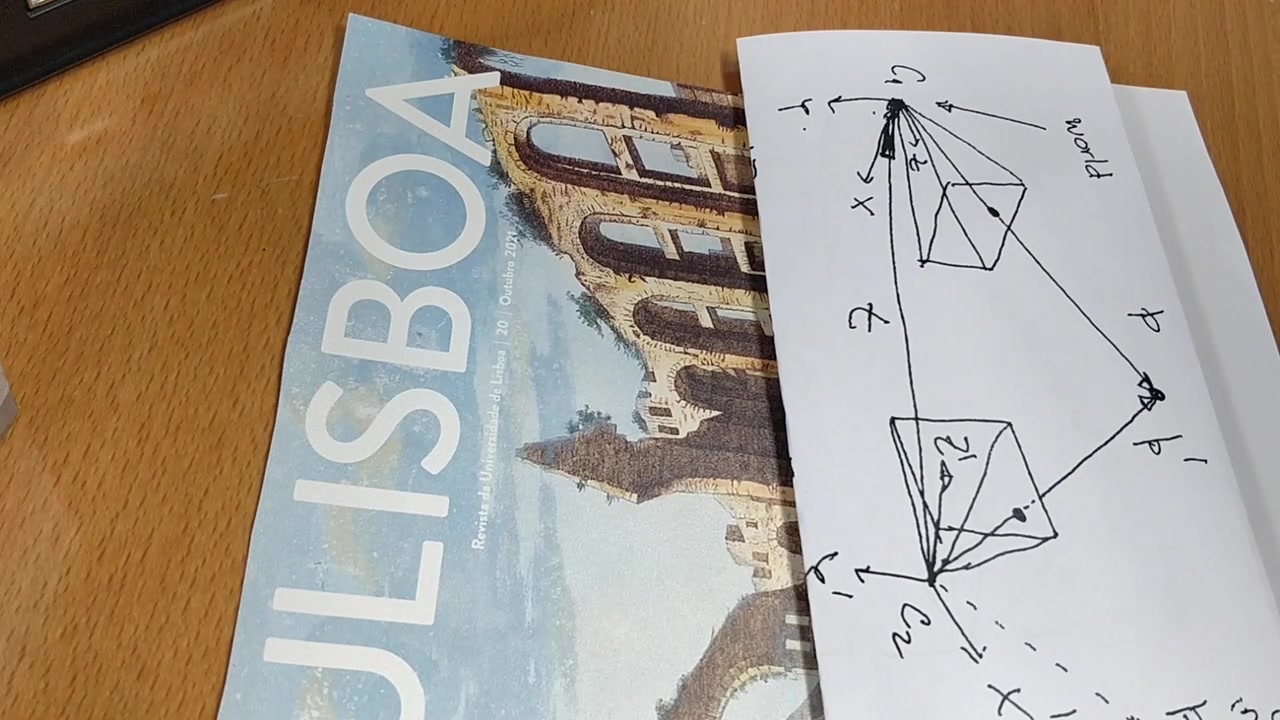 ULISBOA
Revista da Universidade de Lisboa | 20 | Outubro 2021
C1
world
Y
Z
X
T
P
P'
Z'
Y'
C2
X